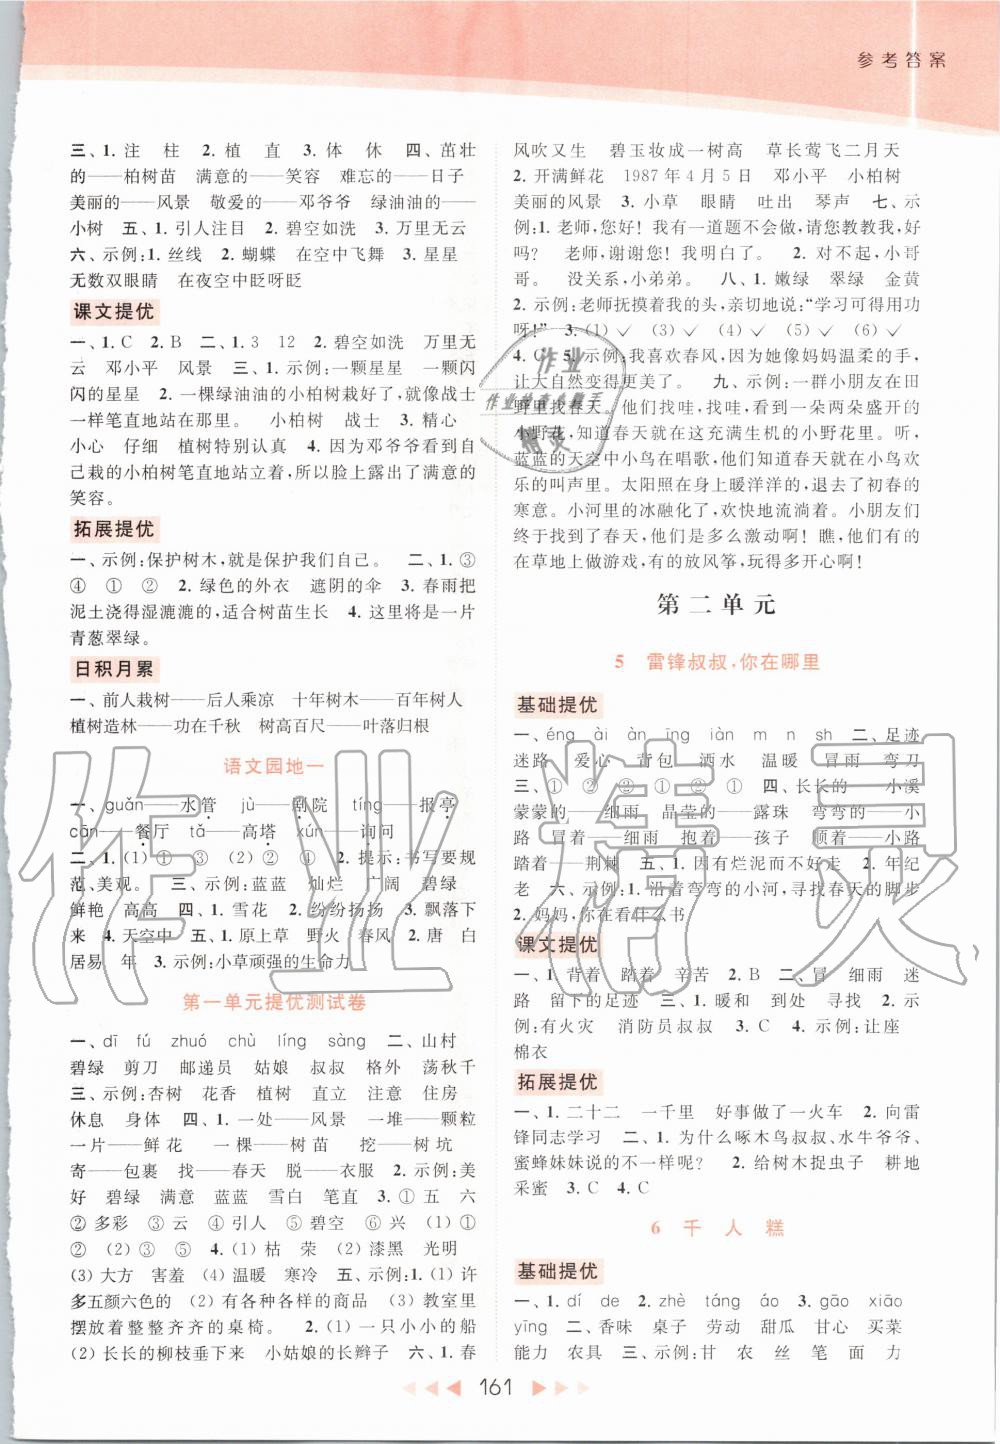 参考答案
三、1. 注 柱 2. 植 直 3. 体 休 四、茁壮
的——柏树苗 满意的——笑容 难忘的——日子
美丽的——风景 敬爱的——邓爷爷 绿油油的——
小树 五、1. 引人注目 2. 碧空如洗 3. 万里无云
六、示例:1. 丝线 2. 蝴蝶 在空中飞舞 3. 星星
无数双眼睛 在夜空中眨呀眨
课文提优
一、1. C 2. B 二、1. 3 12 2. 碧空如洗 万里无
云 邓小平 风景 三、1. 示例:一颗星星 一颗闪
闪的星星 2. 一棵绿油油的小柏树栽好了,就像战士
一样笔直地站在那里。 小柏树 战士 3. 精心
小心 仔细 植树特别认真 4. 因为邓爷爷看到自
己栽的小柏树笔直地站立着,所以脸上露出了满意的
笑容。
拓展提优
一、示例:保护树木,就是保护我们自己。 二、1. ③
④ ① ② 2. 绿色的外衣 遮阴的伞 3. 春雨把
泥土浇得湿漉漉的,适合树苗生长 4. 这里将是一片
青葱翠绿。
日积月累
一、前人栽树——后人乘凉 十年树木——百年树人
植树造林——功在千秋 树高百尺——叶落归根
语文园地一
一、guǎn——水管 jù——剧院 tíng——报亭
cān——餐厅 tǎ——高塔 xún——询问
二、1. (1) ① ③ (2) ② ① 2. 提示:书写要规
范、美观。 三、示例:蓝蓝 灿烂 广阔 碧绿
鲜艳 高高 四、1. 雪花 2. 纷纷扬扬 3. 飘落下
来 4. 天空中 五、1. 原上草 野火 春风 2. 唐 白
居易 年 3. 示例:小草顽强的生命力
第一单元提优测试卷
一、dī fú zhuó chù líng sàng 二、山村
碧绿 剪刀 邮递员 姑娘 叔叔 格外 荡秋千
三、示例:杏树 花香 植树 直立 注意 住房
休息 身体 四、1. 一处——风景 一堆——颗粒
一片——鲜花 一棵——树苗 挖——树坑
寄——包裹 找——春天 脱——衣服 2. 示例:美
好 碧绿 满意 蓝蓝 雪白 笔直 3. ① 五 六
② 多彩 ③ 云 ④ 引人 ⑤ 碧空 ⑥ 兴 (1) ①
② (2) ③ ⑤ 4. (1) 枯 荣 (2) 漆黑 光明
(3) 大方 害羞 (4) 温暖 寒冷 五、示例:1. (1) 许
多五颜六色的 (2) 有各种各样的商品 (3) 教室里
摆放着整整齐齐的桌椅。 2. (1) 一只小小的船
(2) 长长的柳枝垂下来 小姑娘的长辫子 六、1. 春
风吹又生 碧玉妆成一树高 草长莺飞二月天
2. 开满鲜花 1987 年 4 月 5 日 邓小平 小柏树
美丽的风景 3. 小草 眼睛 吐出 琴声 七、示
例:1. 老师,您好! 我有一道题不会做,请您教教我,好
吗? 老师,谢谢您! 2. 对不起,小哥
哥。 没关系,小弟弟。 八、1. 嫩绿 翠绿 金黄
2. 示例:老师抚摸着我的头,亲切地说:“学习可得用功
呀!” 3. (1) ✓ (3) ✓ (4) ✓ (5) ✓ (6) ✓
4. C 5. 示例:我喜欢春风,因为她像妈妈温柔的手,
让大自然变得更美了。 九、示例:一群小朋友在田
野里找春天。他们找哇,找哇,看到一朵两朵盛开的
小野花,知道春天就在这充满生机的小野花里。听,
蓝蓝的天空中小鸟在唱歌,他们知道春天就在小鸟
的叫声里。太阳照在身上暖洋洋的,驱走了初春的
寒意。小河里的冰融化了,欢快地流淌着。小朋友们
终于找到了春天,他们是多么激动啊! 瞧,他们有的
在草地上做游戏,有的放风筝,玩得多开心啊!
第二单元
5 雷锋叔叔,你在哪里
基础提优
一、éng ài àn īng iàn m n sh 二、足迹
迷路 爱心 背包 洒水 温暖 冒雨 弯刀
三、① ① ② ② ① ② 四、长长的——小溪
蒙蒙的——细雨 晶莹的——露珠 弯弯的——小
路 冒着——细雨 抱着——孩子 顺着——小路
踏着——荆棘 五、1. 因有烂泥而不好走 2. 年纪
老 六、示例:1. 沿着弯弯的小河,寻找春天的脚步
2. 妈妈,你在看什么书
课文提优
一、1. 背着 踏着 辛苦 2. B 二、冒 细雨 迷
路 留下的足迹 三、1. 暖和 到处 寻找 2. 示
例:有火灾 消防员叔叔 3. C 4. 示例:让座
棉衣
拓展提优
一、1. 二十二 一千里 好事做了一火车 2. 向雷
锋同志学习 二、1. 为什么啄木鸟叔叔、水牛爷爷、
蜜蜂妹妹说的不一样呢? 2. 给树木捉虫子 耕地
采蜜 3. C 4. C
6 千人糕
基础提优
一、1. dí de 2. zhè táng áo 3. gāo xiāo
yīng 二、香味 桌子 劳动 甜瓜 甘心 买菜
能力 农具 三、示例:甘 农 丝 笔 面 味
161
作业精灵